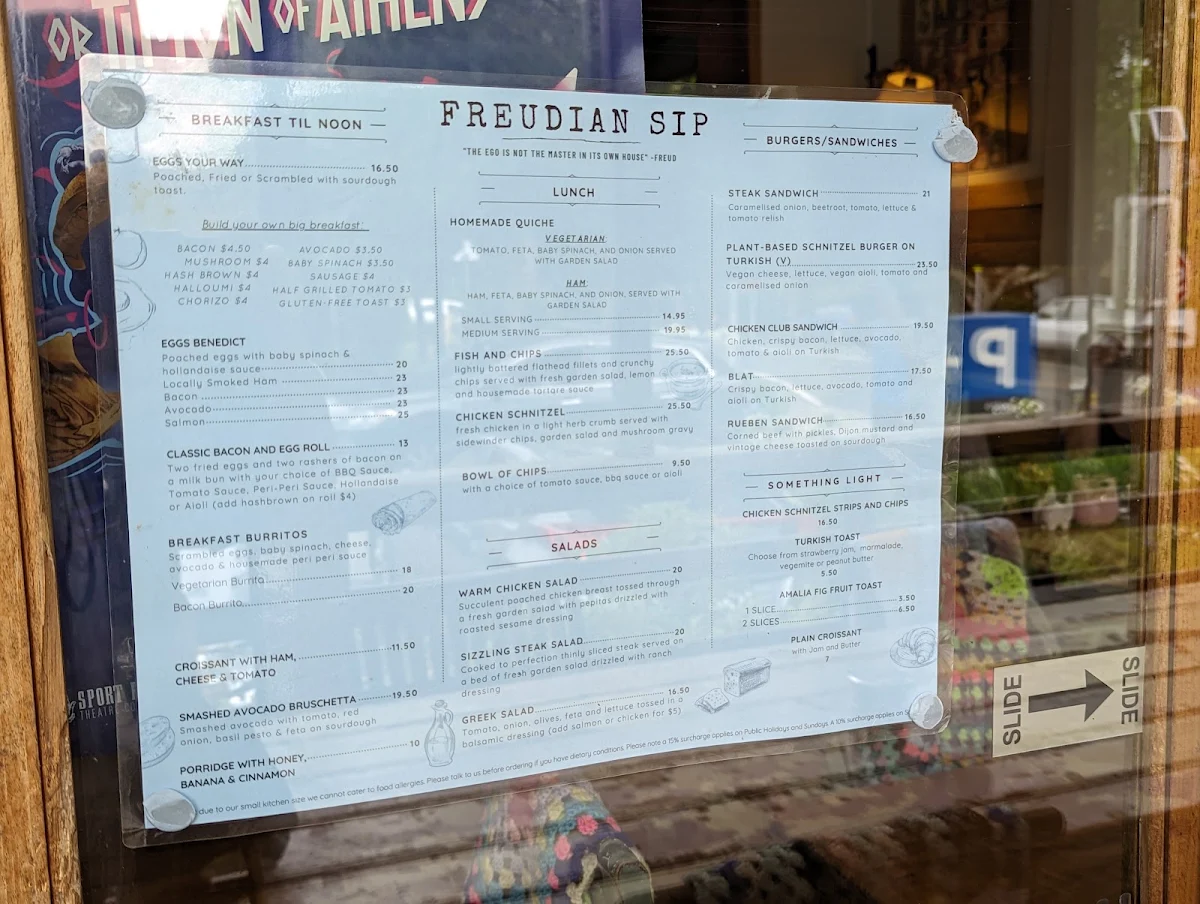 OR TIMON OF ATHENS
FREUDIAN SIP
"THE EGO IS NOT THE MASTER IN ITS OWN HOUSE" -FREUD
BREAKFAST TIL NOON
EGGS YOUR WAY 16.50
Poached, Fried or Scrambled with sourdough
toast.
Build your own big breakfast:
BACON $4.50 AVOCADO $3.50
MUSHROOM $4 BABY SPINACH $3.50
HASH BROWN $4 SAUSAGE $4
HALLOUMI $4 HALF GRILLED TOMATO $3
CHORIZO $4 GLUTEN-FREE TOAST $3
EGGS BENEDICT
Poached eggs with baby spinach &
hollandaise sauce 20
Locally Smoked Ham 23
Bacon 23
Avocado 23
Salmon 25
CLASSIC BACON AND EGG ROLL 13
Two fried eggs and two rashers of bacon on
a milk bun with your choice of BBQ Sauce,
Tomato Sauce, Peri-Peri Sauce, Hollandaise
or Aioli (add hashbrown on roll $4)
BREAKFAST BURRITOS
Scrambled eggs, baby spinach, cheese,
avocado & housemade peri peri sauce
Vegetarian Burrito 18
Bacon Burrito 20
CROISSANT WITH HAM, 11.50
CHEESE & TOMATO
SMASHED AVOCADO BRUSCHETTA 19.50
Smashed avocado with tomato, red
onion, basil pesto & feta on sourdough
PORRIDGE WITH HONEY, 10
BANANA & CINNAMON
LUNCH
HOMEMADE QUICHE
VEGETARIAN:
TOMATO, FETA, BABY SPINACH, AND ONION SERVED
WITH GARDEN SALAD
HAM:
HAM, FETA, BABY SPINACH, AND ONION, SERVED WITH
GARDEN SALAD
SMALL SERVING 14.95
MEDIUM SERVING 19.95
FISH AND CHIPS 25.50
lightly battered flathead fillets and crunchy
chips served with fresh garden salad, lemon
and housemade tartare sauce
CHICKEN SCHNITZEL 25.50
fresh chicken in a light herb crumb served with
sidewinder chips, garden salad and mushroom gravy
BOWL OF CHIPS 9.50
with a choice of tomato sauce, bbq sauce or aioli
SALADS
WARM CHICKEN SALAD 20
Succulent poached chicken breast tossed through
a fresh garden salad with pepitas drizzled with
roasted sesame dressing
SIZZLING STEAK SALAD 20
Cooked to perfection thinly sliced steak served on
a bed of fresh garden salad drizzled with ranch
dressing
GREEK SALAD 16.50
Tomato, onion, olives, feta and lettuce tossed in a
balsamic dressing (add salmon or chicken for $5)
BURGERS/SANDWICHES
STEAK SANDWICH 21
Caramelised onion, beetroot, tomato, lettuce &
tomato relish
PLANT-BASED SCHNITZEL BURGER ON
TURKISH (V) 23.50
Vegan cheese, lettuce, vegan aioli, tomato and
caramelised onion
CHICKEN CLUB SANDWICH 19.50
Chicken, crispy bacon, lettuce, avocado,
tomato & aioli on Turkish
BLAT 17.50
Crispy bacon, lettuce, avocado, tomato and
aioli on Turkish
RUEBEN SANDWICH 16.50
Corned beef with pickles, Dijon mustard and
vintage cheese toasted on sourdough
SOMETHING LIGHT
CHICKEN SCHNITZEL STRIPS AND CHIPS
16.50
TURKISH TOAST
Choose from strawberry jam, marmalade,
vegemite or peanut butter
5.50
AMALIA FIG FRUIT TOAST
1 SLICE 3.50
2 SLICES 6.50
PLAIN CROISSANT
with Jam and Butter
7
due to our small kitchen size we cannot cater to food allergies. Please talk to us before ordering if you have dietary conditions. Please note a 15% surcharge applies on Public Holidays and Sundays. A 10% surcharge applies on
SPORT
THEATRE
P
SLIDE
SLIDE